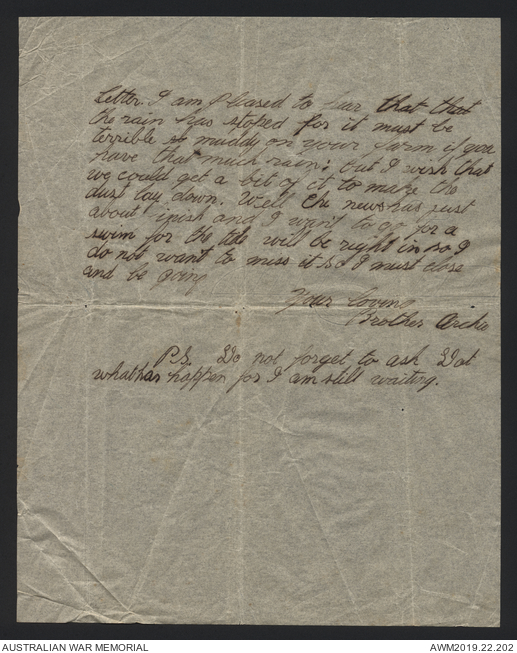 letter. I am pleased to hear that that
the rain has stoped for it must be
terrible so muddy on your farm if you
have that much rain; but I wish that
we could get a bit of it to make the
dust lay down. Well the news has just
about finish and I want to go for a
swim for the tide will be right in so I
do not want to miss it so I must close
and be going
Your loving
Brother Archie
P.S. Do not forget to ask Dot
what has happen for I am still waiting.
AUSTRALIAN WAR MEMORIAL
AWM2019.22.202